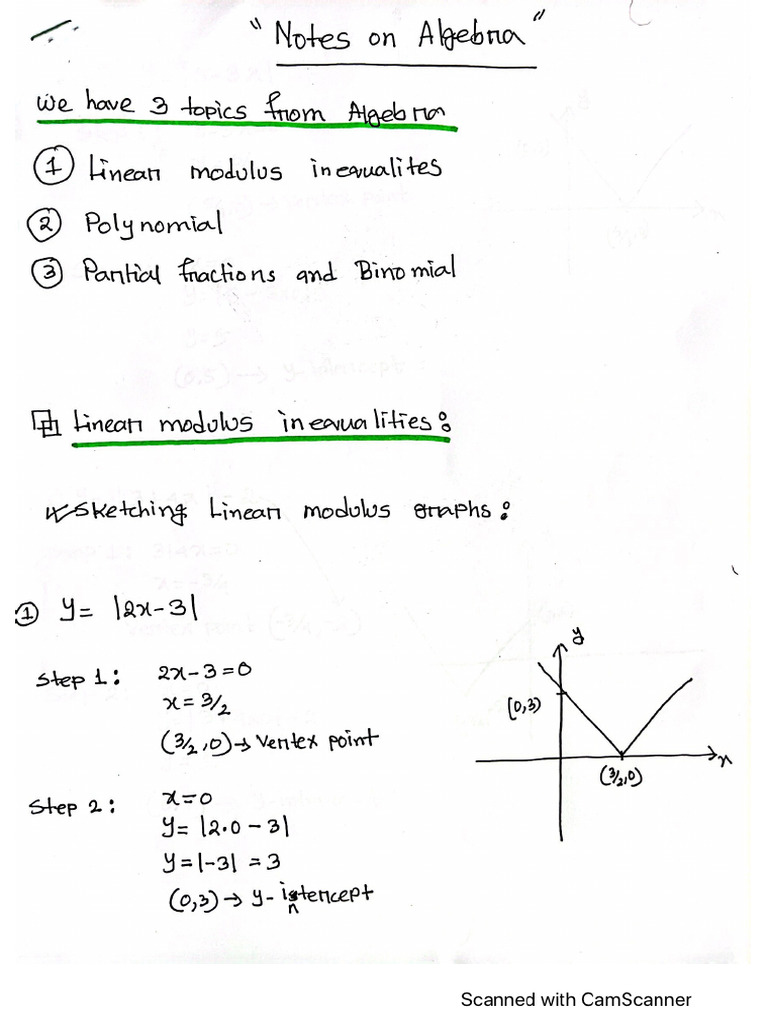 "Notes on Algebra"
We have 3 topics from Algebra
① Linear modulus inequalites
② Polynomial
③ Partial fractions and Binomial
Linear modulus inequalities:
Sketching Linear modulus graphs:
① y= |2x-3|
Step 1: 2x-3=0
x= 3/2
(3/2,0)→ Vertex point
Step 2: x=0
y= |2·0-3|
y=|-3| =3
(0,3)→ y-intercept
y
(0,3)
x
(3/2,0)
Scanned with CamScanner